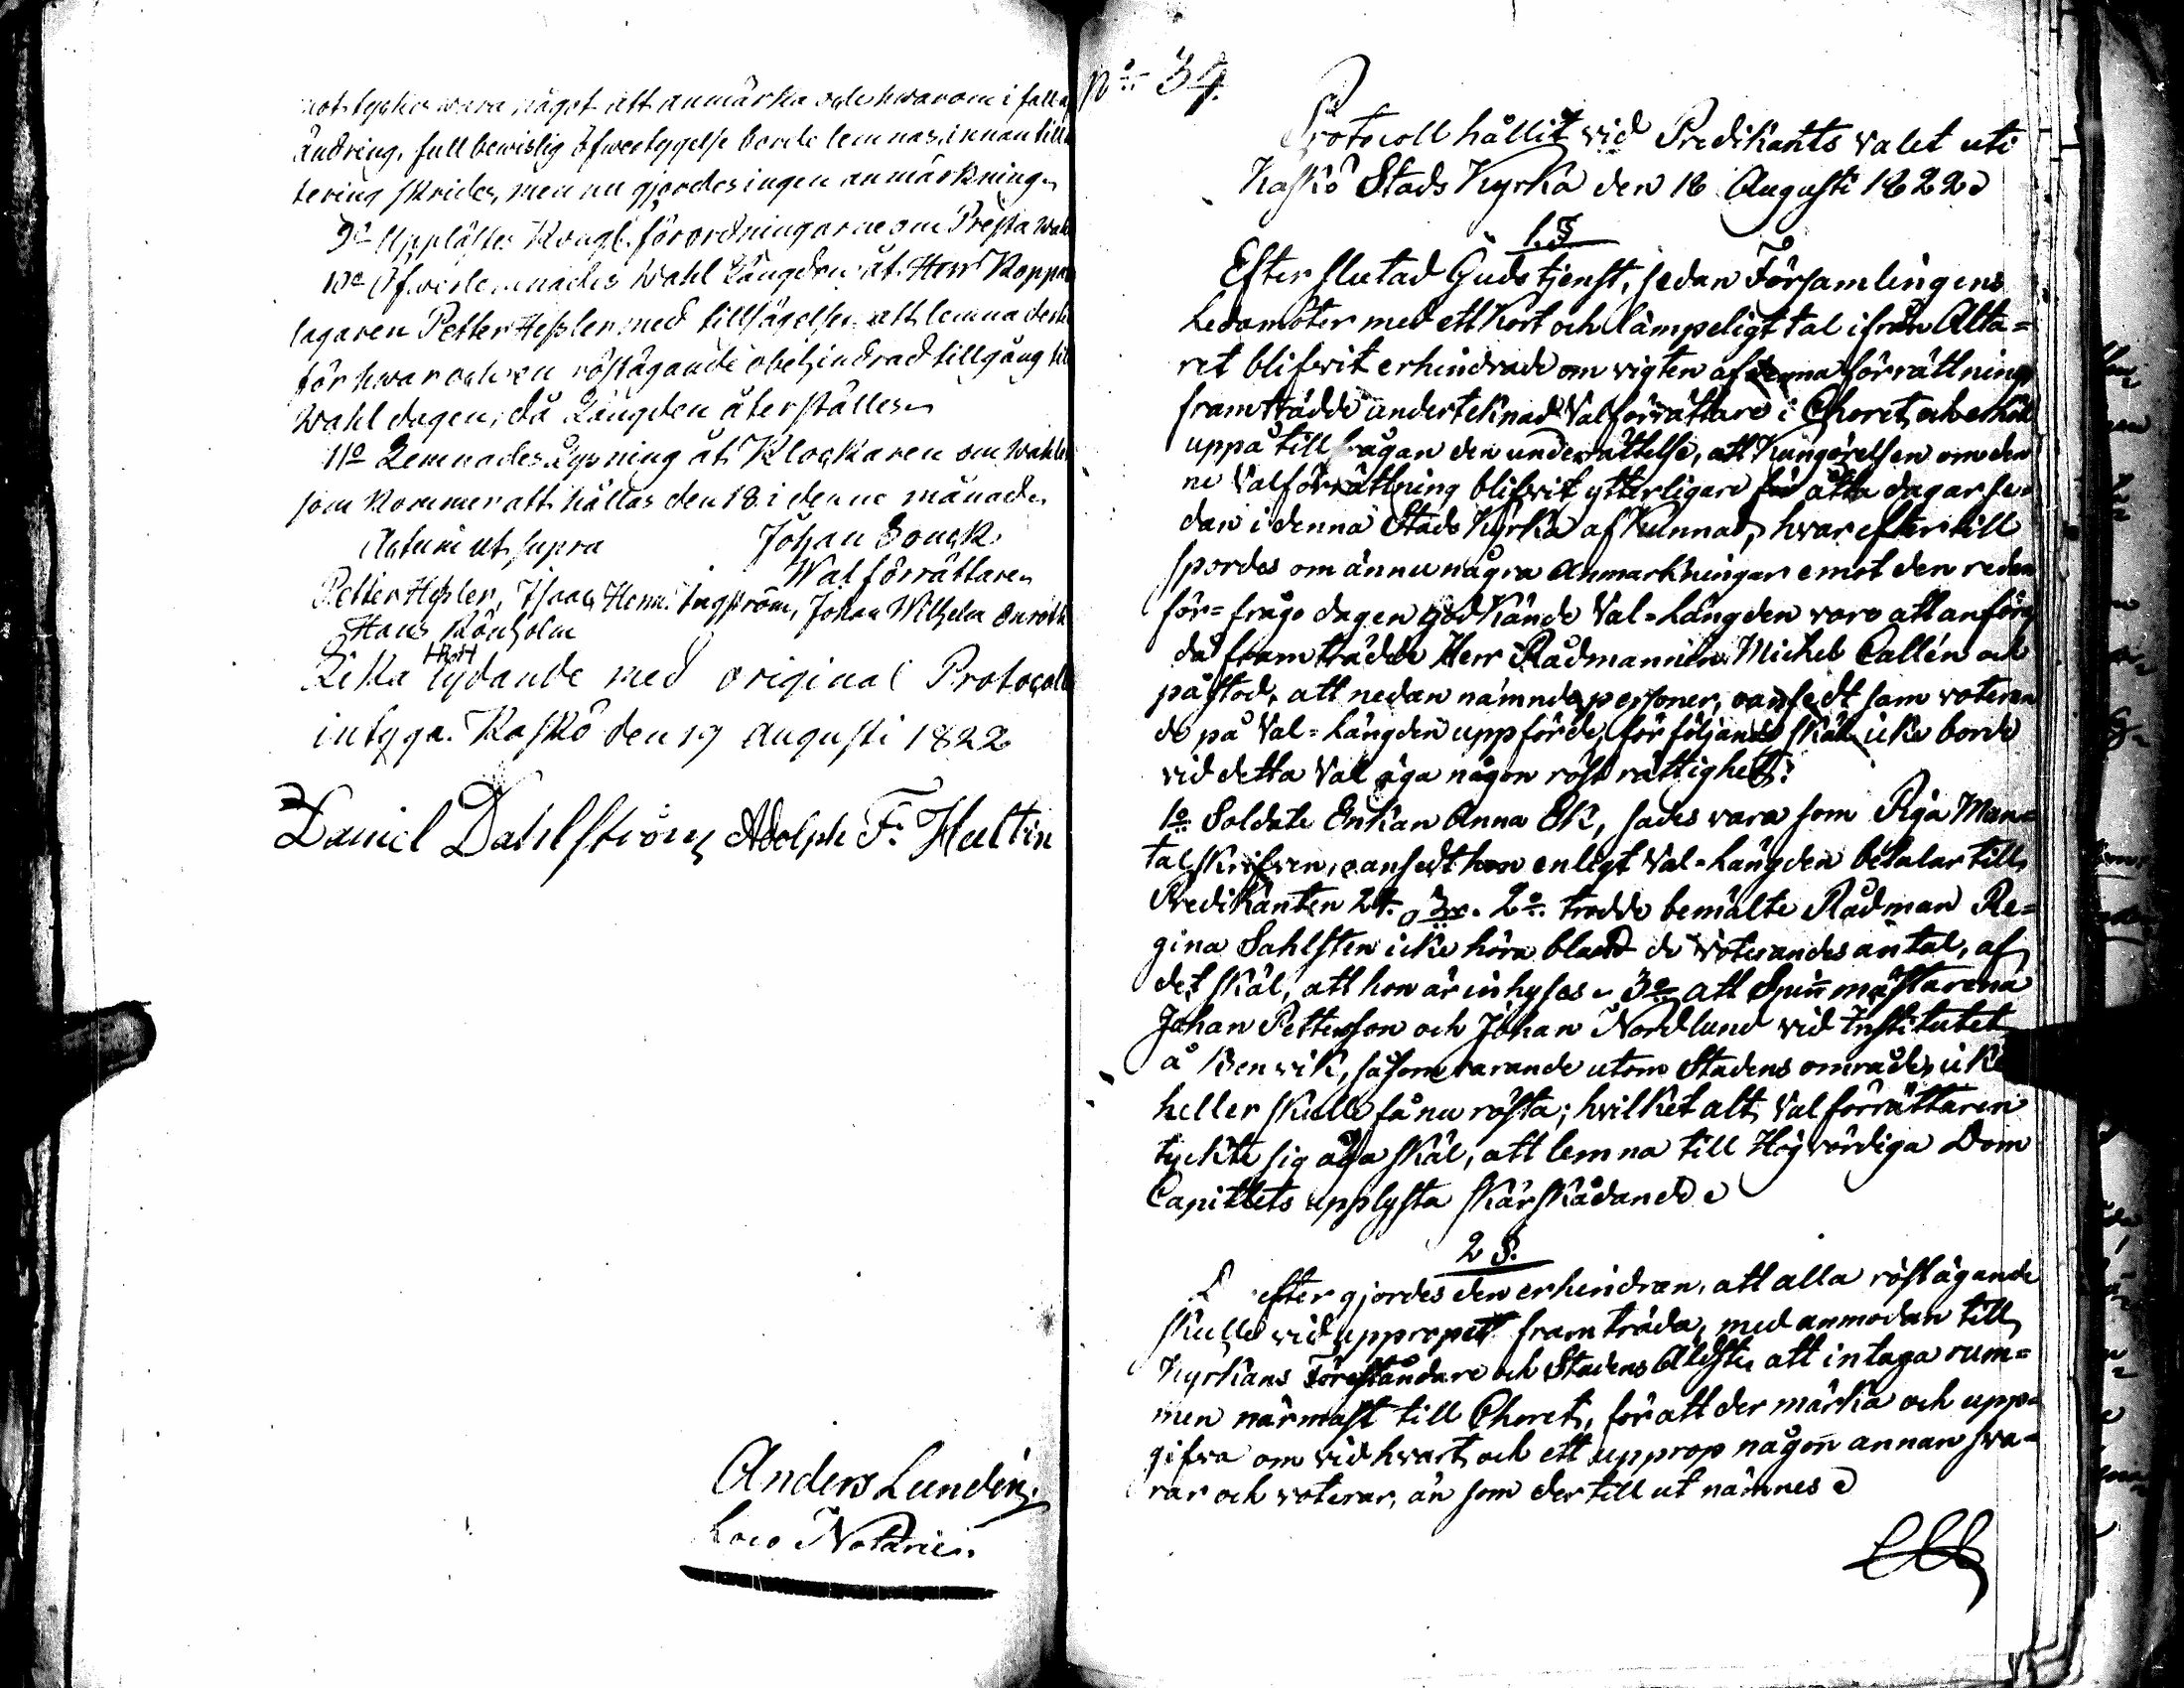 mot tycktes wara något att anmärka och hwarom i fall af
ändring, full bewislig öfwertygelse borde lemnas, innan till
tering skrides, men nu gjordes ingen anmärkning.
9o Upplästes Kongl. förordningarne om Presta wal
10o Öfwerlemnades Wahl Längden åt Herr Koppar
slagaren Petter Hessler med tillsägelse att lemna
för hwar och en röstägande obehindrad tillgång till
Wahl dagen, då Längden återställes.
11o Lemnades Lysning åt Klockaren om wahlet
som kommer att hållas den 18 i denne månad.
Actum ut supra Johan Bonck
Walförrättare.
Petter Hessler, Isaac Henr. Ingström, Johan Wilhelm Enroth
Hans Rönholm
HRH
Lika lydande med original Protocoll
intyga. Kaskö den 19 Augusti 1822
Daniel Dahlström Adolph F. Hultin
Anders Lundén.
Loco Notarie.
No 34.
Protocoll hållit vid Predikants valet uti
Kaskö Stads Kyrka den 18 Augusti 1822.
1.§
Efter slutad Gudstjenst, sedan Församlingens
Ledamöter med ett kort och lämpeligt tal ifrån Alta=
ret blifvit erhindrade om vigten af denna förrättning
framträdde underteknad Valförrättare i Choret och erhöll
uppå tillfrågan den underrättelse, att Kungörelsen om den
ne Valförrättning blifvit ytterligare för åtta dagar se=
dan i denna Stads Kyrka afkunnad, hvarefter till
spordes om ännu några anmärkningar emot den redan
för=frågo dagen godkände Val=Längden voro att anföra
då framträdde Herr Rådmannen Michel Callén och
påstod, att nedan nämnde personer, oansedt som voteran
de på Val=Längden uppförde, för följande skäl icke borde
vid detta Val äga någon röst rättighet:
1o Soldate Enkan Anna Ek, sades vara som Piga Man=
talskrifven, oansedt hon enligt Val=Längden betalar till
Predikanten 24. 2o trodde bemälte Rådman Re=
gina Sahlsten icke höra bland de voterandes antal, af
det skäl, att hon är inhyses. 3o att Spinnmästarena
Johan Petterson och Johan Nordlund vid Institutet
å Benvik, såsom varande utom Stadens område, icke
heller skulle få nu rösta; hvilket alt Valförrättaren
tyckte sig äga skäl, att lemna till Högvördiga Dom
Capitlets upplysta skärskådande.
2 §.
efter gjordes den erhindran, att alla röstägande
skulle vid uppropet framträda, med anmodan till
Kyrkans Föreståndare och Stadens Äldste, att intaga rum=
men närmast till Choret, för att der märka och upp=
gifva om vid hvart och ett upprop någon annan sva=
rar och voterar, än som dertill ut nämnes.